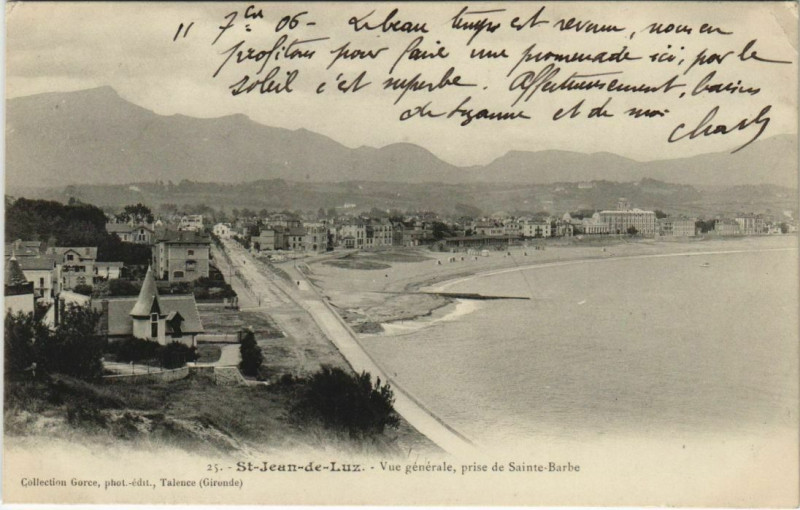 11 7bre 06 - Le beau temps est revenu, nous en
profitons pour faire une promenade ici, par le
soleil c'est superbe. Affectueusement, baisers
de Suzanne et de moi
Charles
25. - St-Jean-de-Luz. - Vue générale, prise de Sainte-Barbe
Collection Gorce, phot.-édit., Talence (Gironde)